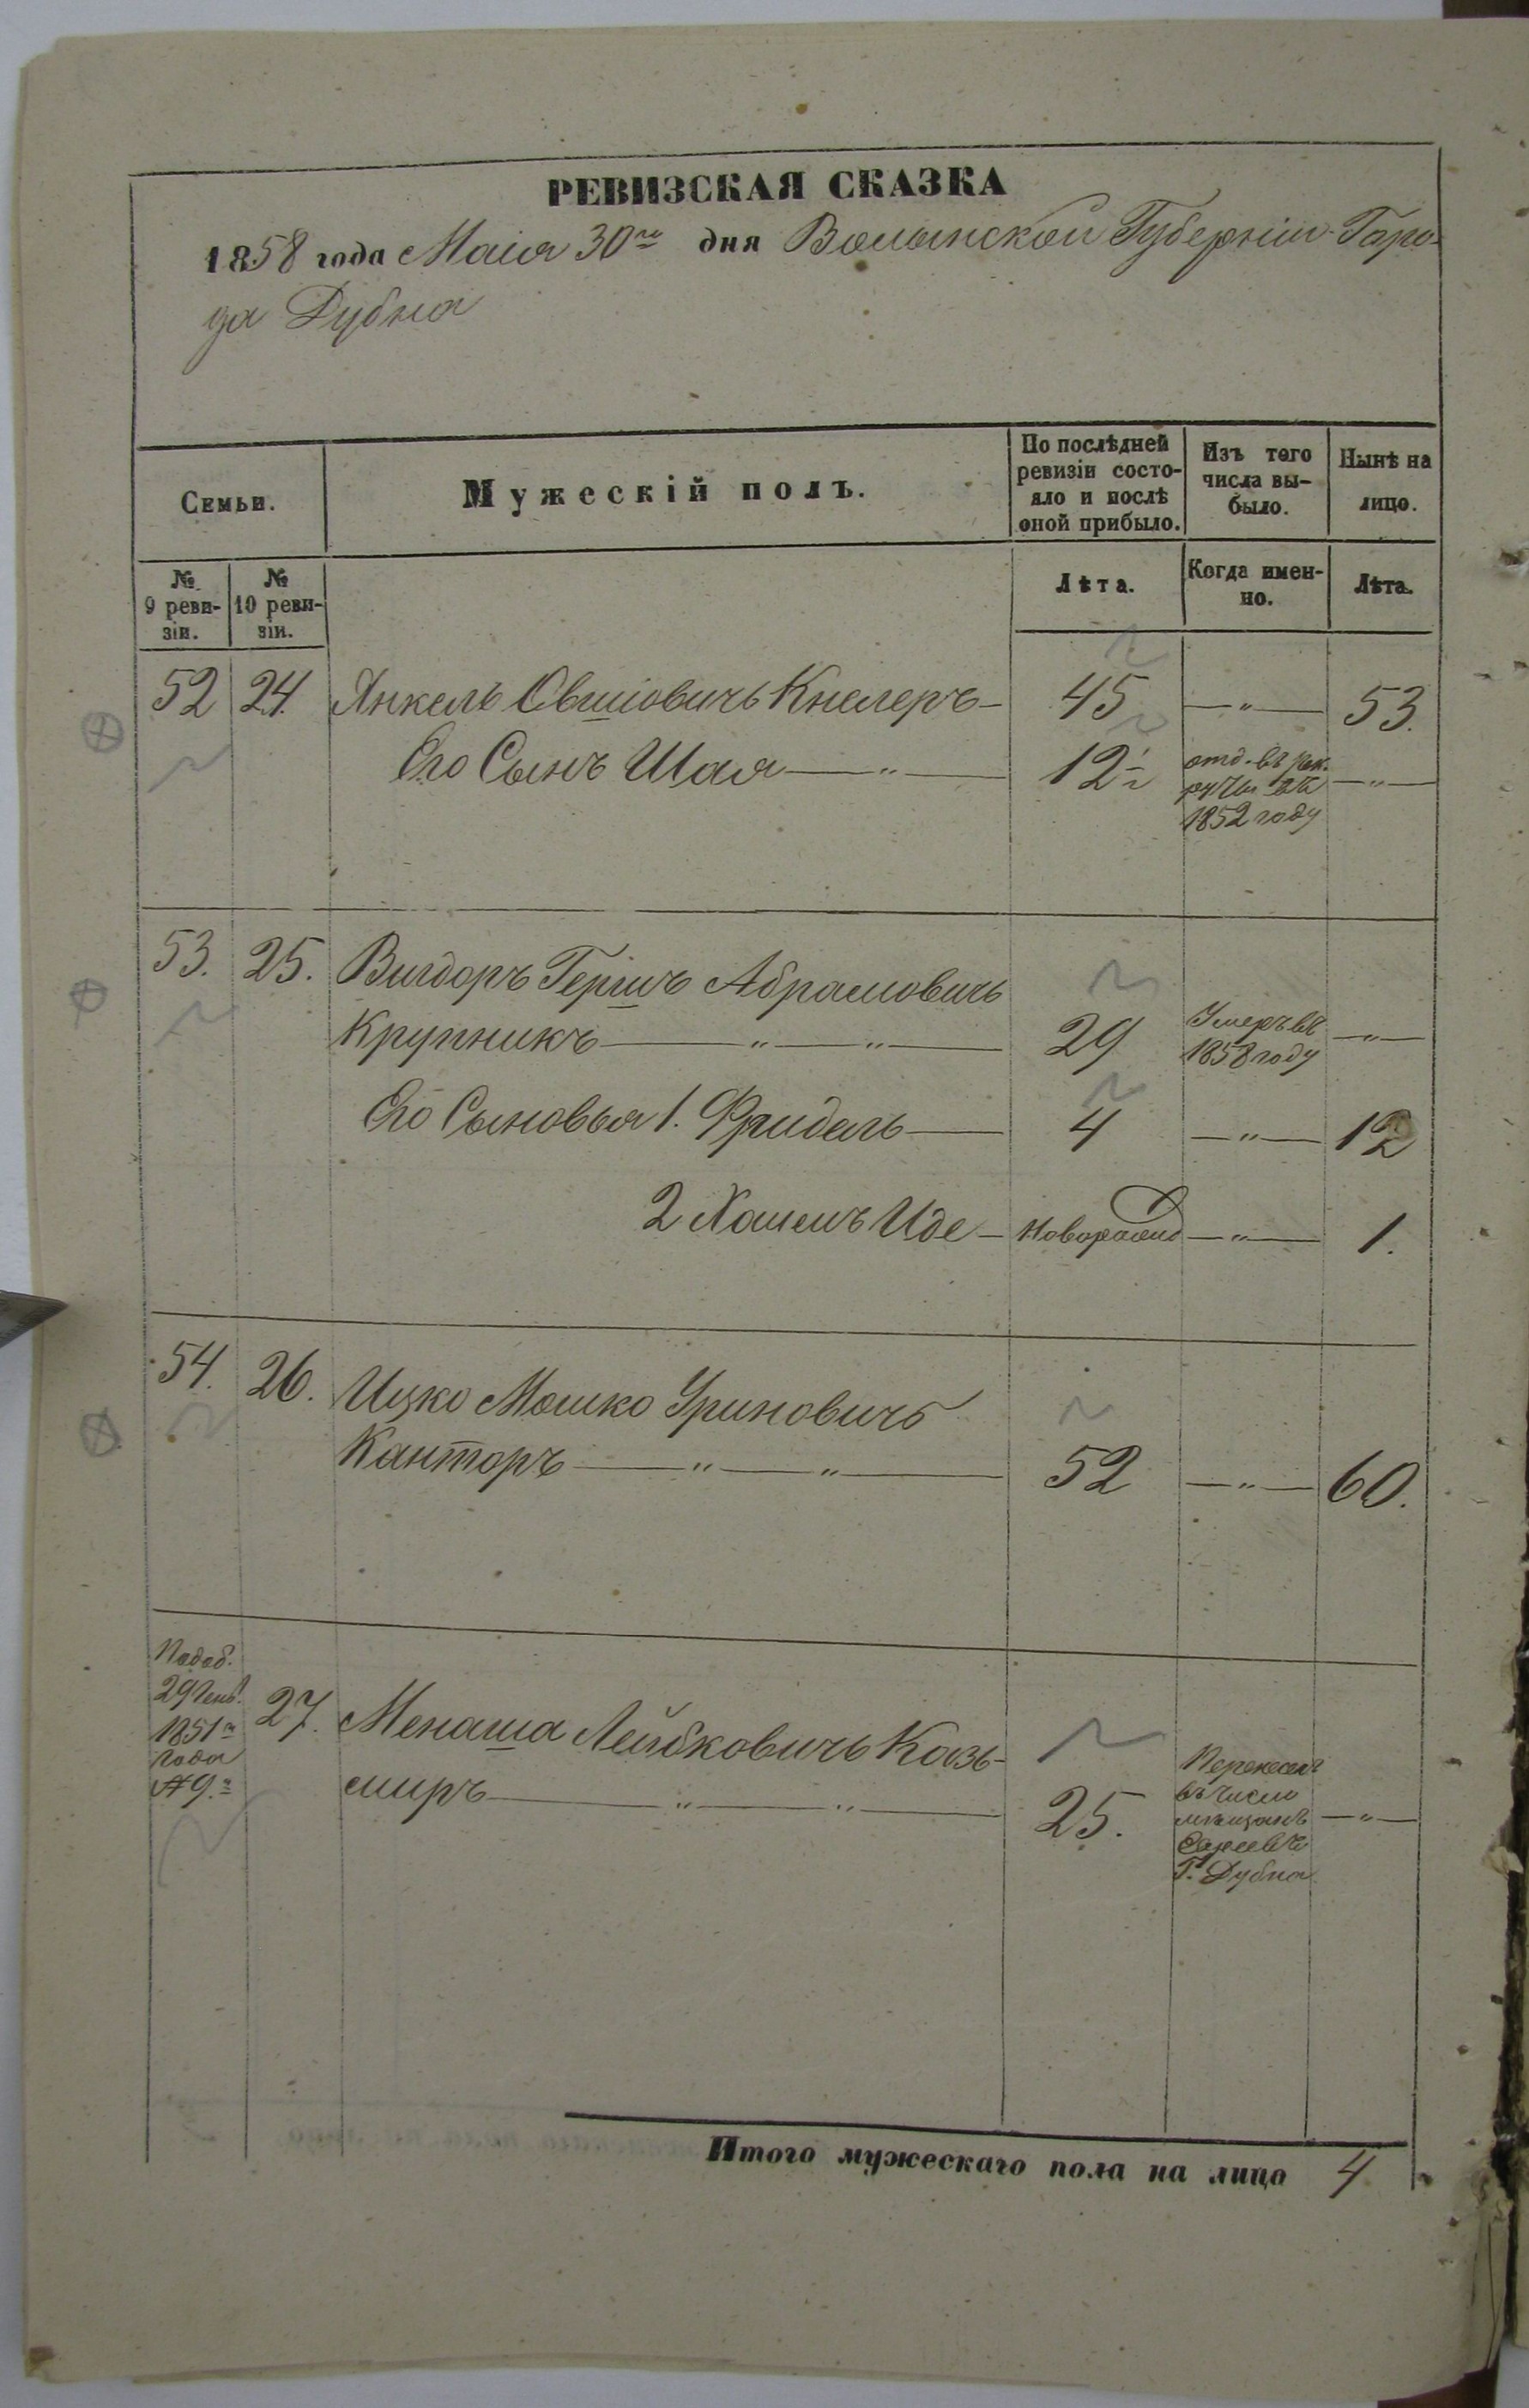 РЕВИЗСКАЯ СКАЗКА
1858 года Маія 30го дня Волынской Губерніи Горо-
да Дубна
Семьи.
Мужескій полъ.
По послѣдней ревизіи состо-яло и послѣ оной прибыло.
Изъ того числа вы-было.
Нынѣ на лицо.
№ 9 реви-зіи.
№ 10 реви-зіи.
Лѣта.
Когда имен-но.
Лѣта.
52 24. Янкель Овшіовичъ Кнелеръ — 45 — " — 53.
Его Сынъ Шая — " — 12 1/2 отд. въ рек-руты въ 1852 году — " —
53. 25. Вигдоръ Гершъ Абрамовичъ
Крупникъ — " — " — 29 Умеръ въ 1858 году — " —
Его Сыновья 1. Фридель — 4 — " — 12
2 Хаимъ Иде — Новорожд — " — 1.
54. 26. Ицко Мошко Уриновичъ
Канторъ — " — " — 52 — " — 60.
29 Генв. 1851 года № 9. 27. Менаша Лейбковичъ Козь-
миръ — " — " — 25. въ число мѣщанъ Евреевъ Г. Дубна — " —
Итого мужескаго пола на лицо 4